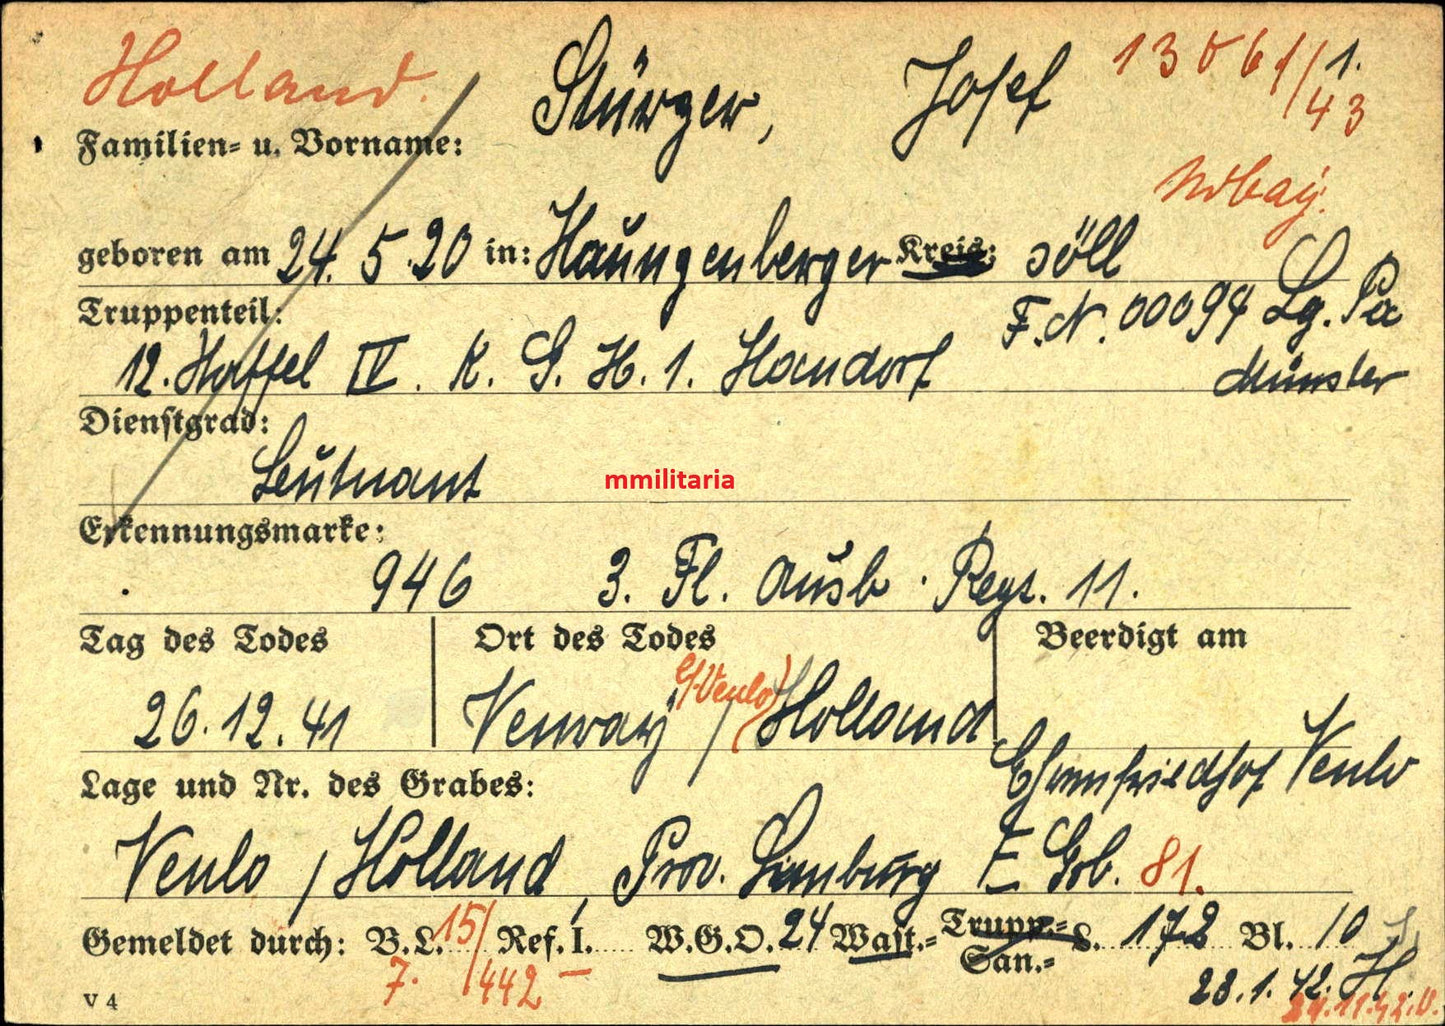 Holland. Stürger, Josef 13061/1.
43
Familien= u. Vorname:
geboren am 24. 5. 20 in: Haungenberger Kreis: Söll
Truppenteil: F. N. 00094 Lg. Pa
12. Staffel IV. K. G. H. 1. Handorf Münster
Dienstgrad:
Leutnant
mmilitaria
Erkennungsmarke:
946 3. Fl. Ausb. Regt. 11.
Tag des Todes Ort des Todes Beerdigt am
26.12.41 Venray (/Venlo) / Holland
Lage und Nr. des Grabes: Ehrenfriedhof Venlo
Venlo / Holland, Prov. Limburg E Grb. 81.
Gemeldet durch: B.L. 15/ Ref. I. W.G.O. 24 Wast.= Trupp.= L. 172 Bl. 10
San.=
7. /442 –
V 4 23.1.42. H.